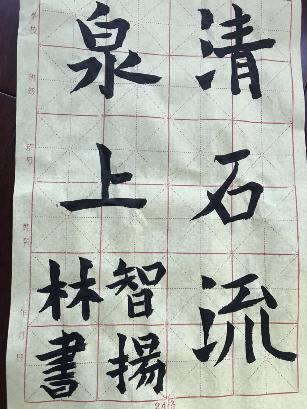 清泉
石上
流
智揚
林書